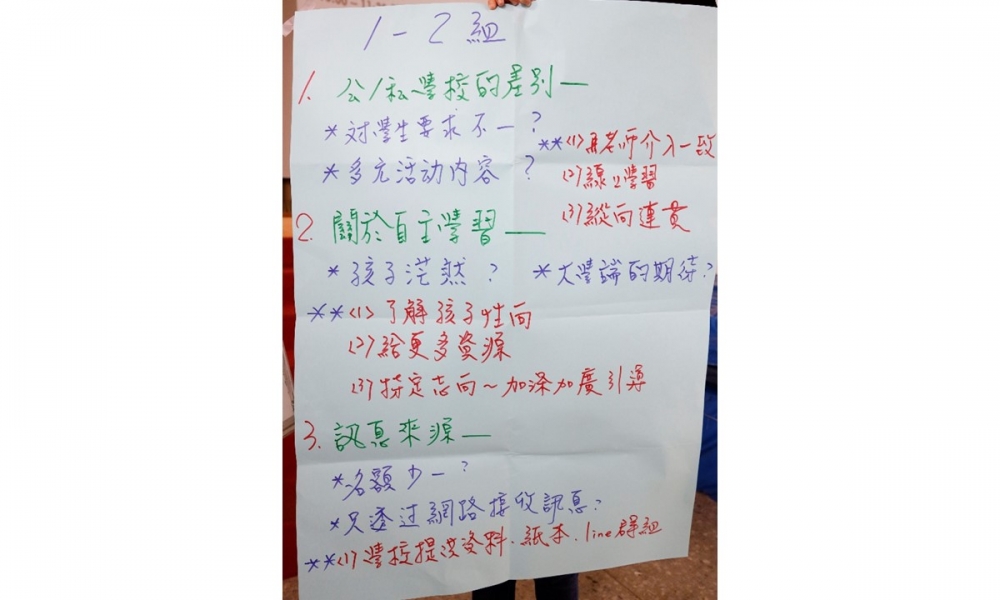 1-2組
1. 公/私學校的差別—
*对學生要求不一?
*多元活动內容?
**(1)老师介入一致
(2)線上學習
(3)縱向連貫
2. 關於自主學習—
*孩子茫然?
*大學端的期待?
**(1)了解孩子性向
(2)給更多資源
(3)特定志向~加深加廣引導
3. 訊息來源—
*名額少一?
*只透过網路接收訊息?
**(1)學校提供資料、紙本、line群組